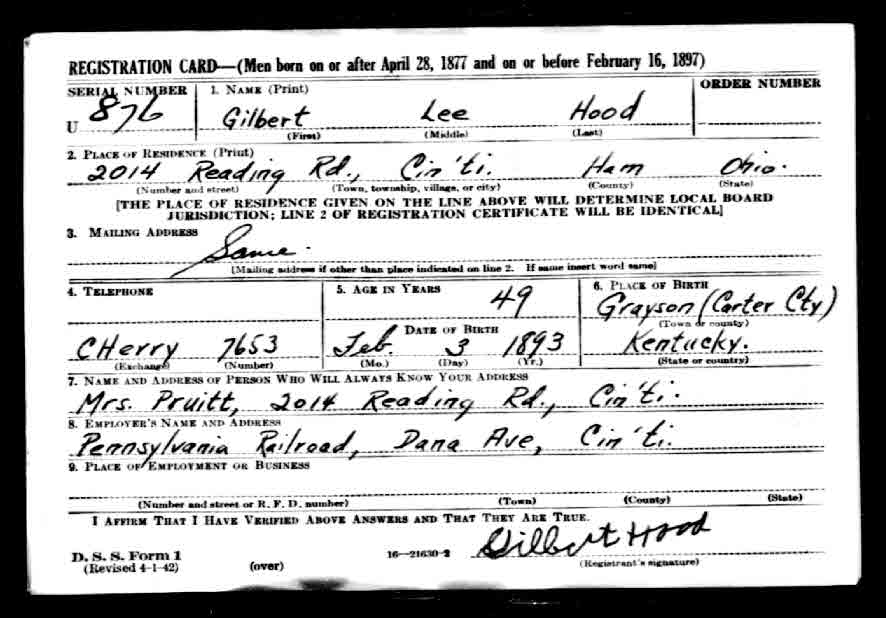 REGISTRATION CARD—(Men born on or after April 28, 1877 and on or before February 16, 1897)
SERIAL NUMBER 1. NAME (Print) ORDER NUMBER
U 876 Gilbert Lee Hood
(First) (Middle) (Last)
2. PLACE OF RESIDENCE (Print)
2014 Reading Rd., Cin'ti. Ham Ohio.
(Number and street) (Town, township, village, or city) (County) (State)
[THE PLACE OF RESIDENCE GIVEN ON THE LINE ABOVE WILL DETERMINE LOCAL BOARD
JURISDICTION; LINE 2 OF REGISTRATION CERTIFICATE WILL BE IDENTICAL]
3. MAILING ADDRESS
Same.
[Mailing address if other than place indicated on line 2. If same insert word same]
4. TELEPHONE 5. AGE IN YEARS 6. PLACE OF BIRTH
49 Grayson (Carter Cty)
DATE OF BIRTH (Town or county)
CHerry 7653 Feb. 3 1893 Kentucky.
(Exchange) (Number) (Mo.) (Day) (Yr.) (State or country)
7. NAME AND ADDRESS OF PERSON WHO WILL ALWAYS KNOW YOUR ADDRESS
Mrs. Pruitt, 2014 Reading Rd., Cin'ti.
8. EMPLOYER'S NAME AND ADDRESS
Pennsylvania Railroad, Dana Ave, Cin'ti.
9. PLACE OF EMPLOYMENT OR BUSINESS
(Number and street or R. F. D. number) (Town) (County) (State)
I AFFIRM THAT I HAVE VERIFIED ABOVE ANSWERS AND THAT THEY ARE TRUE.
Gilbert Hood
D. S. S. Form 1 16—21630-2
(Revised 4-1-42) (over) (Registrant's signature)